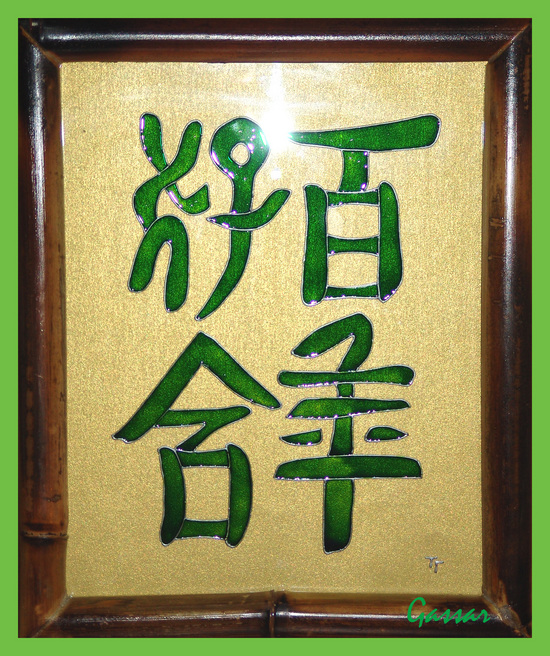 百年
好合
Gassar